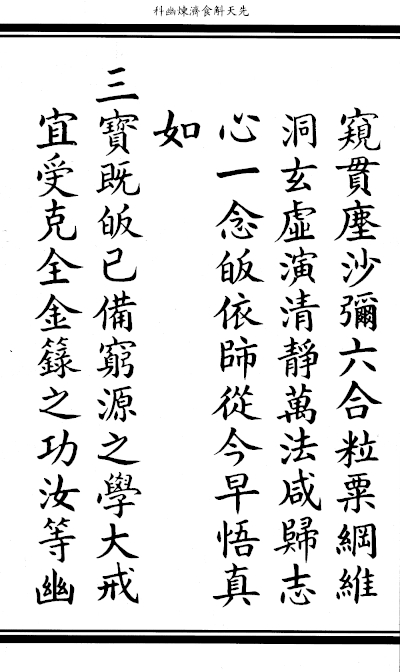 先天斛食濟煉幽科
窺貫塵沙彌六合粒粟綱維
洞玄虛演清靜萬法咸歸志
心一念皈依師從今早悟真
如
三寶既皈已備窮源之學大戒
宜受克全金籙之功汝等幽